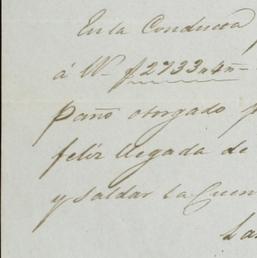 En la Conducta
á W. $2733,,4n
paño otorgado p
feliz llegada de
y saldar la Cuen
La